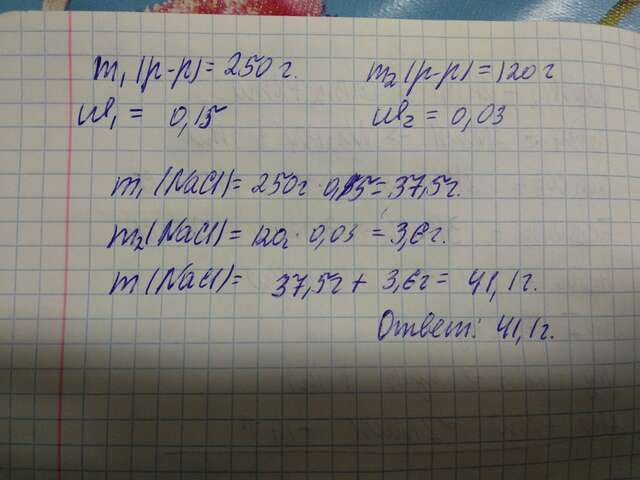 m₁(р-р) = 250 г. m₂(р-р) = 120 г
ω₁ = 0,15 ω₂ = 0,03
m₁(NaCl) = 250г · 0,15 = 37,5г.
m₂(NaCl) = 120г · 0,03 = 3,6г.
m(NaCl) = 37,5г + 3,6г = 41,1г.
Ответ: 41,1г.